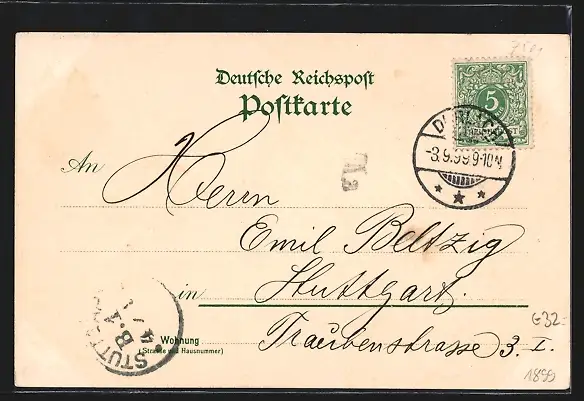 Deutsche Reichspost
Postkarte
5
REICHSPOST
DURLACH
-3.9.99 9-10 N
An Herrn
Emil Beltzig
in Stuttgart.
Wohnung
(Straße und Hausnummer)
Traubenstrasse 3. I.
STUTT
B. 1
4/
G32-
1899